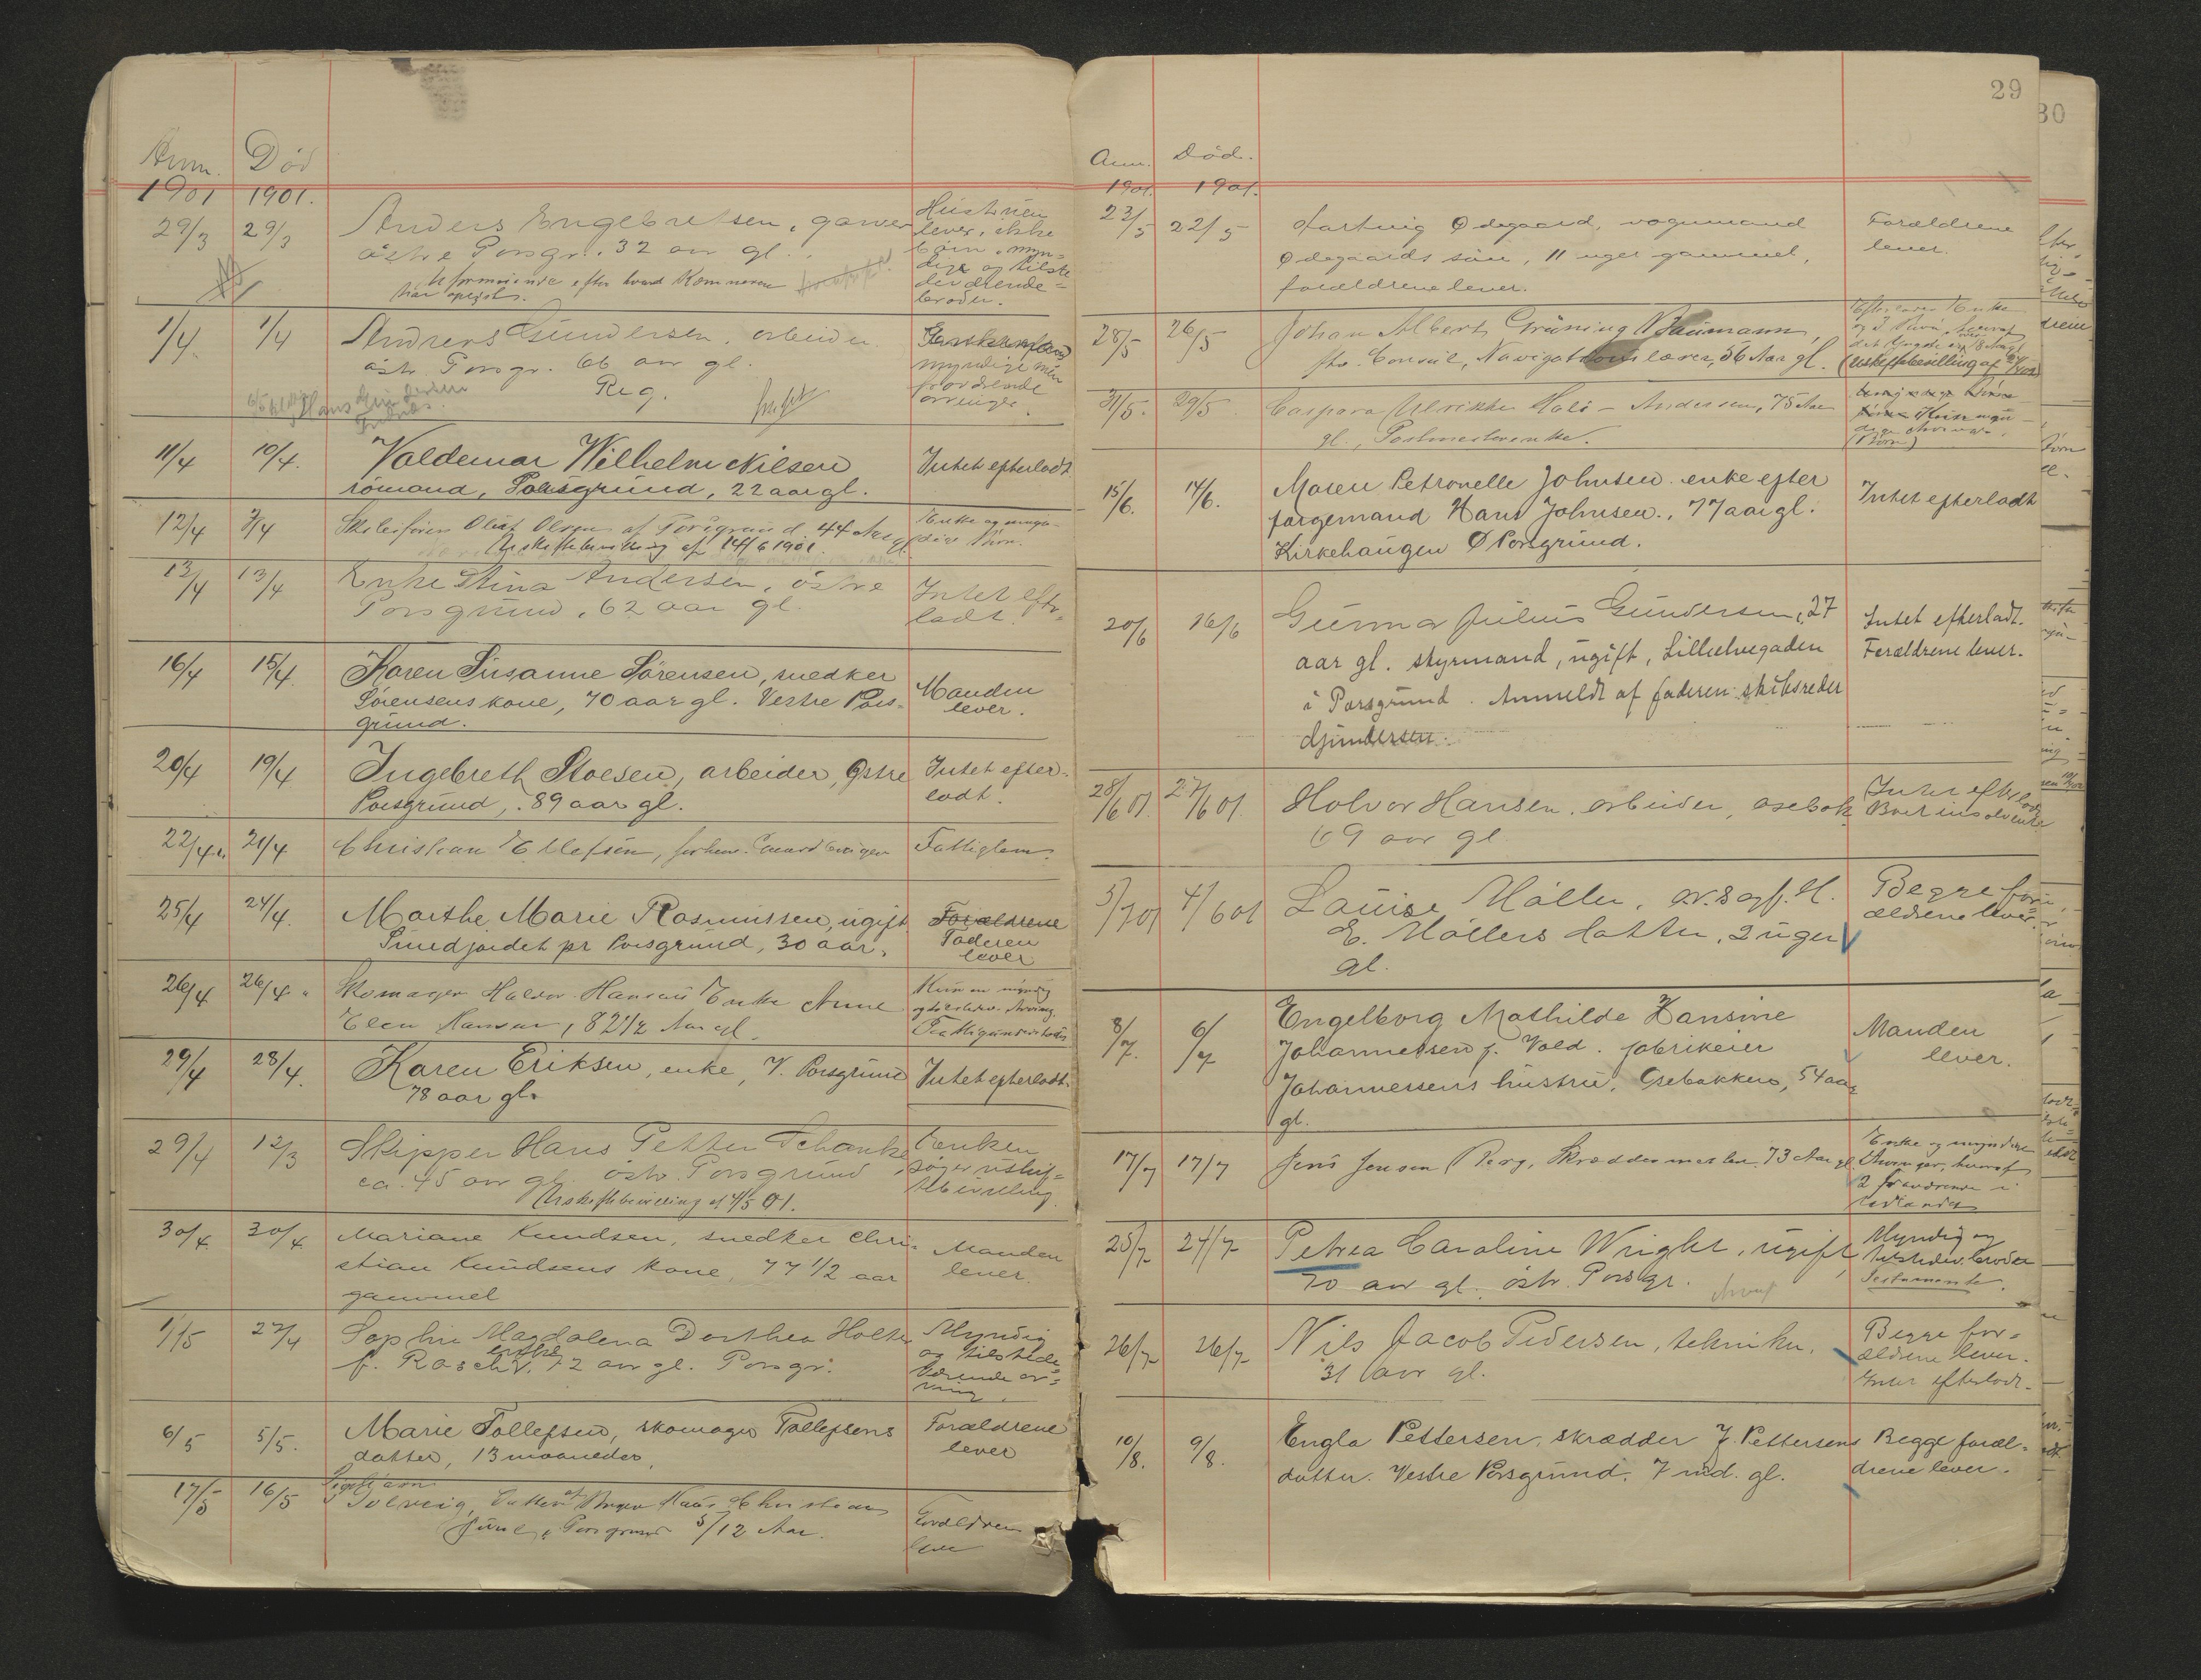 Anm. Død
1901 1901.
29/3 29/3 Anders Engebretsen, garver Hustruen
østre Porsgr. 32 aar gl. lever, ikke
børn, myn-
dige og tilste
deværende
brødre.
efter hvad Kemneren
har oplyst.
1/4. 1/4 Andreas Gundersen, arbeider
østr. Porsgr. 66 aar gl. myndige men
Reg. fraværende
arvinger.
Hans Gundersen
11/4 10/4. Valdemar Wilhelm Nilsen Intet efterladt.
sømand, Porsgrund, 22 aar gl.
12/4 3/4 Skibsfører Oluf Olsen af Porsgrund 44 Aar gl. Enke og umyn-
Uskiftebevilling af 14/6 1901. dige Børn.
13/4 13/4 Enke Stina Andersen, østre Intet efter-
Porsgrund, 62 aar gl. ladt.
16/4 15/4. Karen Susanne Sørensen, snedker
Sørensens kone, 70 aar gl. Vestre Pors- Manden
grund. lever.
20/4 19/4 Ingebreth Stoesen, arbeider, Østre Intet efter-
Porsgrund, 89 aar gl. ladt.
22/4 21/4 Christian Ellefsen, forhen Fattiglem.
25/4 24/4. Marthe Marie Rasmussen, ugift Forældrene
Smedjordet pr Porsgrund, 30 aar. Faderen
lever
26/4 26/4 Skomager Halvor Hansens Enke Anne Kun en myndig
Elen Hansen, 82 1/2 Aar gl. og tilstedev. Arving.
Fattigunderstøt.
29/4 28/4. Karen Eriksen, enke, V. Porsgrund Intet efterladt.
78 aar gl.
29/4 12/3 Skipper Hans Petter Schanke Enken
ca. 45 aar gl. østr. Porsgrund søger uskif-
Uskiftebevilling af 4/5 01. tebevilling
30/4. 30/4. Mariane Knudsen, snedker Chri- Manden
stian Knudsens kone, 77 1/2 aar lever.
gammel
1/5 27/4 Sophie Magdalena Dorthea Holte Myndig
enke
f. Rasch. 72 aar gl. Porsgr. og tilstede
værende ar-
ving.
6/5 5/5. Marie Tollefsen, skomager Tollefsens Forældrene
datter, 13 maaneder, lever
17/5 16/5 Solveig, Datter af Hans Christian
Juul, Porsgrund 5/12 Aar. Forældrene
lever
29
Anm. Død.
1901. 1901.
23/5 22/5 Hartvig Ødegaard, vognmand Forældrene
Ødegaards søn, 11 uger gammel, lever.
forældrene lever.
28/5 26/5 Johan Albert Grüning Baumann, Efterlader Enke
fhv. Consul, Navigationslærer, 56 Aar gl. (Uskiftebevilling af
31/5. 29/5 Caspara Ulrikke Holi-Andersen, 75 Aar
gl., Postmesterenke. (Børn)
15/6. 14/6. Maren Petronelle Johnsen enke efter Intet efterladt
færgemand Hans Johnsen., 77 aar gl.
Kirkehaugen Ø Porsgrund.
20/6 16/6 Gunnar Julius Gundersen, 27 Intet efterladt.
aar gl. styrmand, ugift, Lilleelvegaden Forældrene lever.
i Porsgrund. Anmeldt af faderen skibsreder
Gundersen.
28/6 01. 27/6 01. Halvor Hansen, arbeider, osebak. Intet efterladt
69 aar gl. Boet insolvent
5/7 01 4/6 01 Louise Møller, ov.sagf. H. Begge foræ-
E. Møllers datter, 2 uger ældrene lever.
gl.
8/7. 6/7 Engelborg Mathilde Hansine Manden
Johannessen f. Vold. fabrikeier lever.
Johannessens hustru, Osebakken, 54 aar
gl.
17/7 17/7 Jens Jensen Berg, Skræddermester 73 Aar gl. Enke og myndige
Arvinger, hvoraf
2 fraværende i
Udlandet
25/7 24/7 Petrea Caroline Wright, ugift, Myndig og
70 aar gl. østr. Porsgr. tilstedev. broder
Testamente.
26/7 26/7 Nils Jacob Pedersen, tekniker. Begge for-
31 aar gl. ældrene lever.
Intet efterladt.
10/8. 9/8. Engla Pettersen, skrædder J. Pettersens Begge foræl-
datter. Vestre Porsgrund. 7 md. gl. drene lever.
30